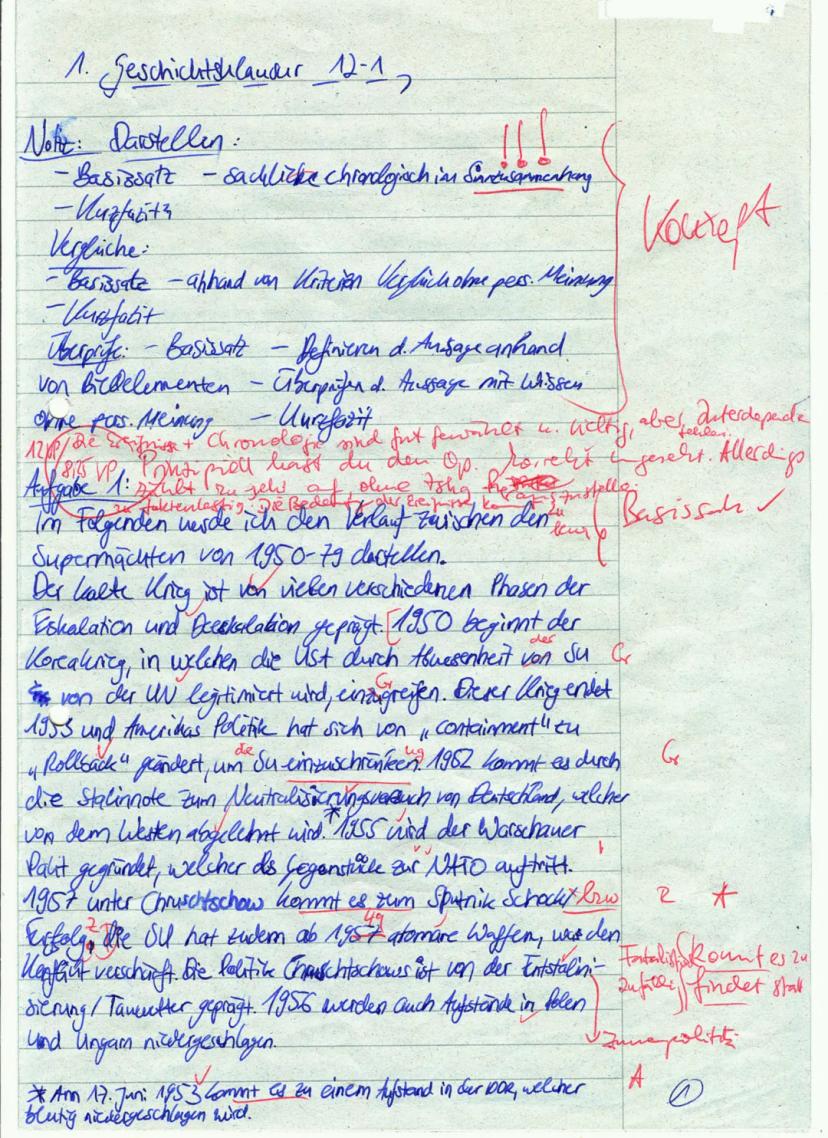 1. Geschichtsklausur 12-1
Notiz: Darstellen:
!!!
- Basissatz - sachliche chronologisch im Sinnzusammenhang
- Kurzfazit
Konzept
Vergleiche:
- Basissatz - anhand von Kriterien Vergleich ohne pers. Meinung
- Kurzfazit
Überprüfe: - Basissatz - Definieren d. Aussage anhand
von Bildelementen - Überprüfen d. Aussage mit Wissen
ohne pers. Meinung - Kurzfazit
Die Ereignisse + Chronologie sind gut gewählt u. richtig, aber Interdependenzen fehlen.
8,5 VP Prinzipiell hast du den Op. korrekt umgesetzt. Allerdings
Aufgabe 1: zählst zu sehr auf ohne Zshg
zu faktenlastig, die Bedeutung der Ereignisse kommt zu kurz
Im Folgenden werde ich den Verlauf zwischen den
Basissatz ✓
Supermächten von 1950-79 darstellen.
Der kalte Krieg ist von vielen verschiedenen Phasen der
Eskalation und Deeskalation geprägt. [1950 beginnt der
Koreakrieg, in welchen die USA durch Abwesenheit von der SU Gr
von der UN legitimiert wird, einzugreifen. Dieser Krieg endet
Gr
1953 und Amerikas Politik hat sich von „containment" zu
„Rollback" geändert, um die SU einzuschränken. 1952 kommt es durch Gr
die Stalinnote zum Neutralisierungsversuch von Deutschland, welcher
von dem Westen abgelehnt wird.* 1955 wird der Warschauer
Pakt gegründet, welcher als Gegenstück zur NATO auftritt.
1957 unter Chruschtschow kommt es zum Sputnik Schock/ bzw R *
Erfolg, die SU hat zudem ab 1957 atomare Waffen, was den
Z
49
Konflikt verschärft. Die Politik Chruschtschows ist von der Entstalini-
kommt es zu
zufällig findet statt
sierung/Tauwetter geprägt. 1956 werden auch Aufstände in Polen
und Ungarn niedergeschlagen.
A
* Am 17. Juni 1953 kommt es zu einem Aufstand in der DDR, welcher
blutig niedergeschlagen wird.
1